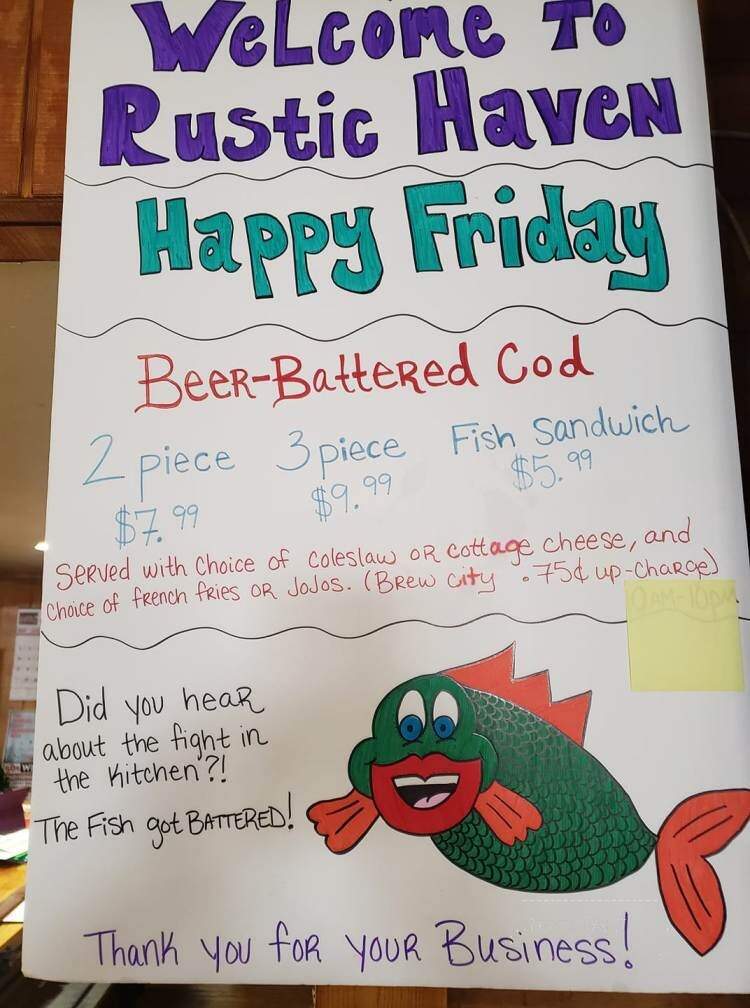 Welcome To
Rustic Haven
Happy Friday
Beer-Battered Cod
2 piece 3 piece Fish Sandwich
$7.99 $9.99 $5.99
Served with Choice of coleslaw or cottage cheese, and
Choice of french fries or JoJos. (Brew City .75¢ up-charge)
Did you hear
about the fight in
the kitchen?!
The Fish got BATTERED!
Thank you for your Business!